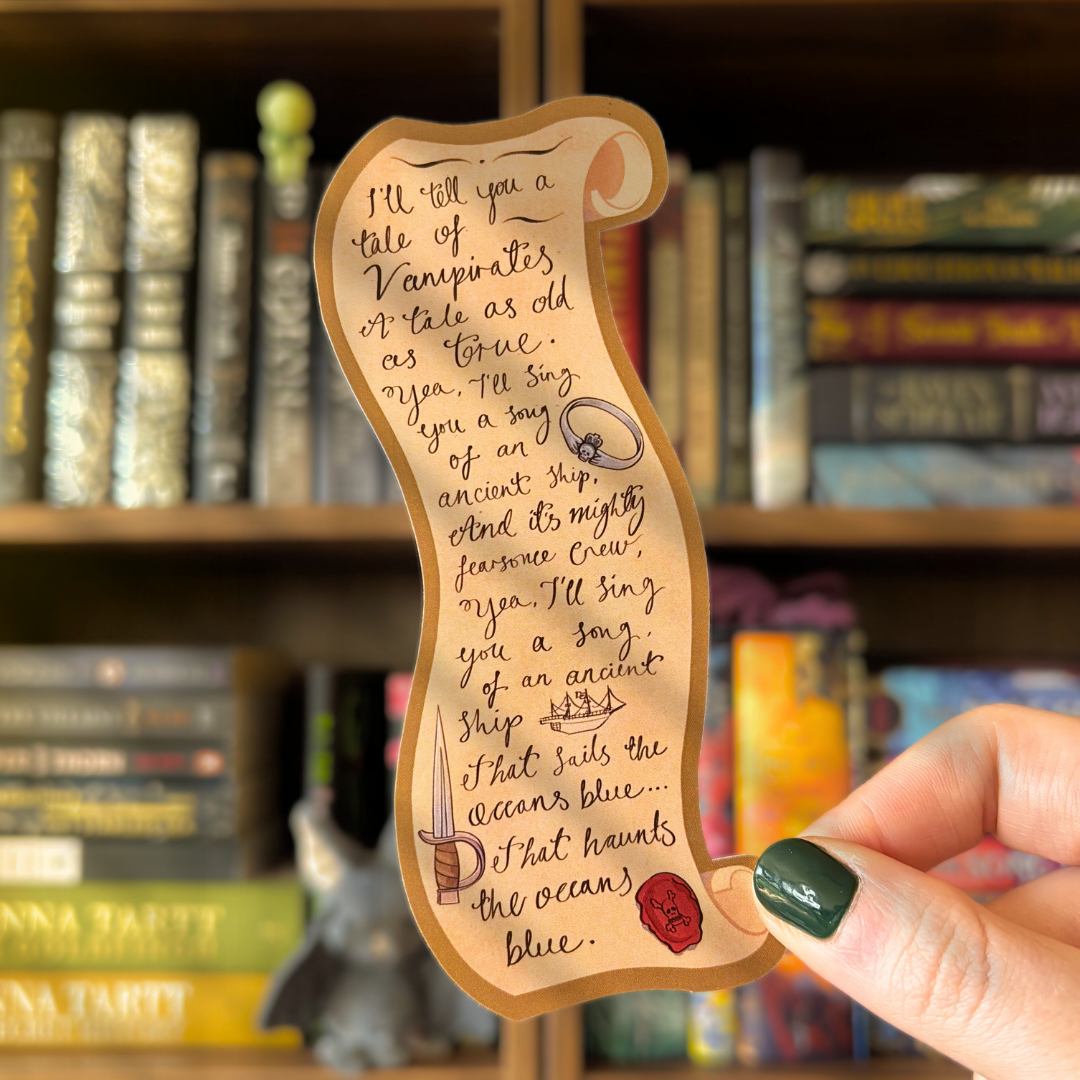 I'll tell you a
tale of
Vampirates
A tale as old
as true.
Yea, I'll sing
you a song
of an
ancient ship,
And it's mighty
fearsome crew,
Yea, I'll sing
you a song,
of an ancient
ship
That sails the
oceans blue...
That haunts
the oceans
blue.
KATABASIS
NNA TARTT
NNA TARTT